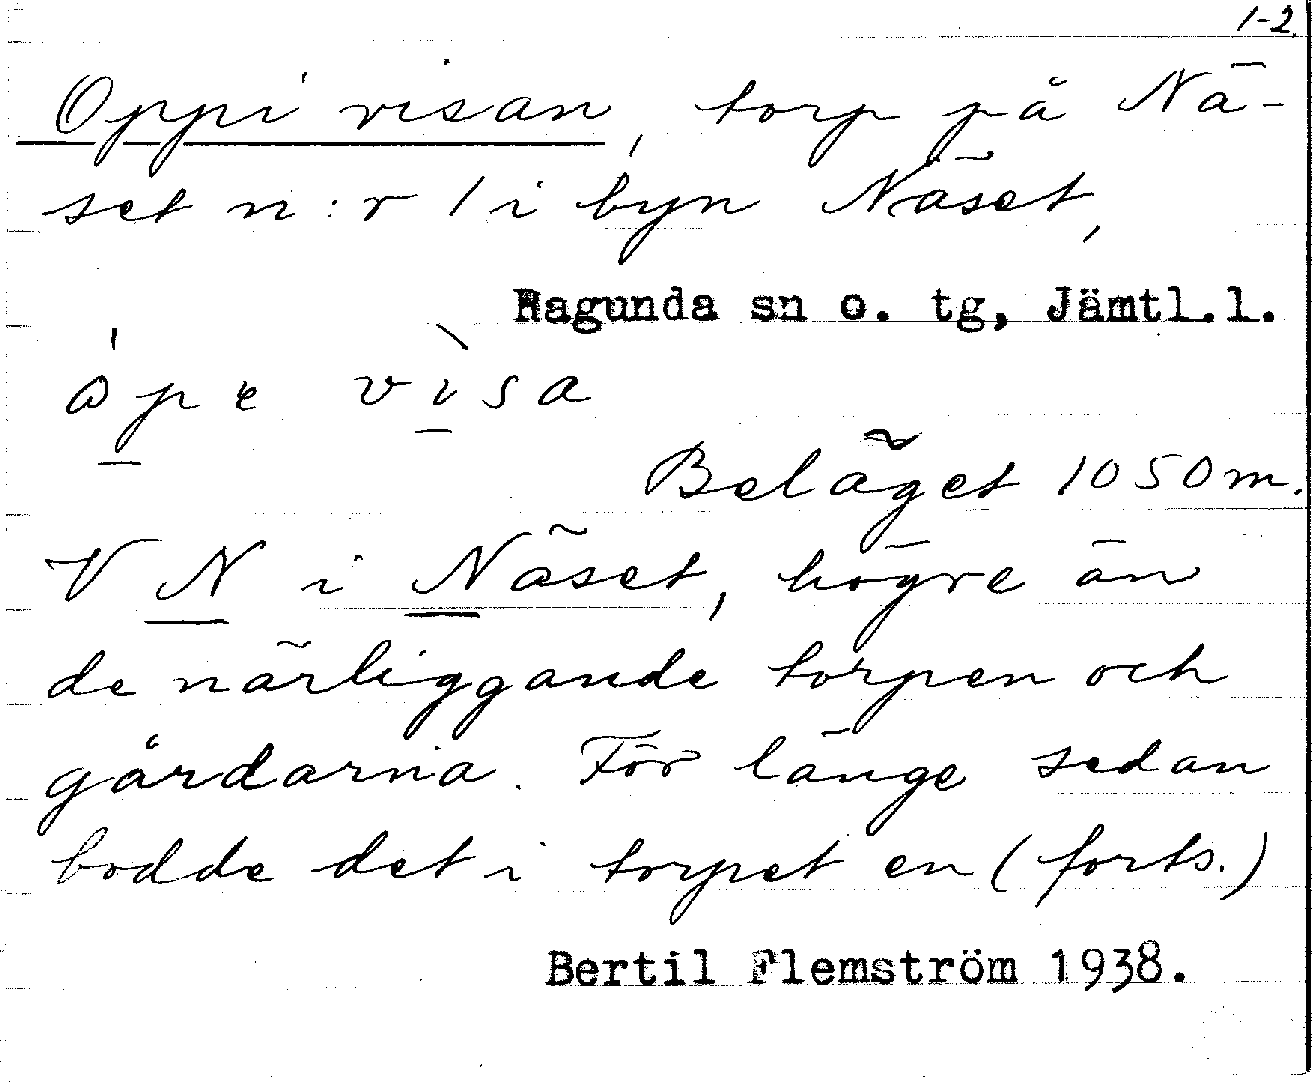 1-2.
Oppi visan, torp på Nä-
set n:r 1 i byn Näset,
Ragunda sn o. tg, Jämtl.l.
Beläget 1050 m.
V N i Näset, högre än
de närliggande torpen och
gårdarna. För länge sedan
bodde det i torpet en (forts.)
Bertil Flemström 1938.